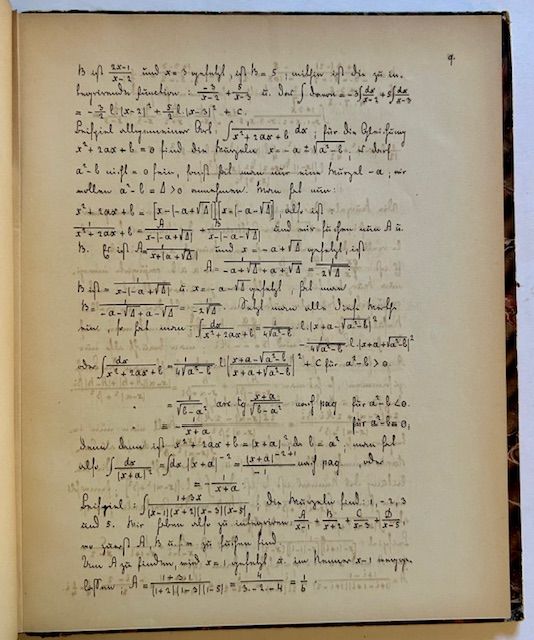 9.
B ist \frac{2x-1}{x-2} und x = 3 gesetzt, ist B = 5, mithin ist die zu in-
tegrirende Function: \frac{-3}{x-2} + \frac{5}{x-3} u. das ∫ davon = -3∫\frac{dx}{x-2} + 5∫\frac{dx}{x-3}
= -\frac{3}{2} l.(x-2)^2 + \frac{5}{2} l.(x-3)^2 + C.
Beispiel allgemeiner Art ∫\frac{1}{x^2+2ax+b} dx; für die Gleichung
x^2 + 2ax + b = 0 sind die Wurzeln x = -a ± \sqrt{a^2-b}, es darf
a^2-b nicht = 0 sein, sonst hat man nur eine Wurzel -a; wir
wollen a^2-b = Δ > 0 annehmen. Man hat nun:
x^2 + 2ax + b = [x-(-a+\sqrt{Δ})][x-(-a-\sqrt{Δ})], also ist
\frac{1}{x^2+2ax+b} = \frac{A}{x-(-a+\sqrt{Δ})} + \frac{B}{x-(-a-\sqrt{Δ})} und wir suchen nun A u.
B. Es ist A = \frac{1}{x+(a+\sqrt{Δ})} und x = -a+\sqrt{Δ} gesetzt, ist
A = \frac{1}{-a+\sqrt{Δ}+a+\sqrt{Δ}} = \frac{1}{2\sqrt{Δ}};
B ist = \frac{1}{x-(-a+\sqrt{Δ})} u. x = -a-\sqrt{Δ} gesetzt, hat man
B = \frac{1}{-a-\sqrt{Δ}+a-\sqrt{Δ}} = \frac{1}{-2\sqrt{Δ}}. Setzt man alle diese Werthe
ein, so hat man: ∫\frac{dx}{x^2+2ax+b} = \frac{1}{4\sqrt{a^2-b}} l.(x+a-\sqrt{a^2-b})^2
-\frac{1}{4\sqrt{a^2-b}} l.(x+a+\sqrt{a^2-b})^2
oder ∫\frac{dx}{x^2+2ax+b} = \frac{1}{4\sqrt{a^2-b}} l.(\frac{x+a-\sqrt{a^2-b}}{x+a+\sqrt{a^2-b}})^2 + C für a^2-b > 0
= \frac{1}{\sqrt{b-a^2}} arc tg \frac{x+a}{\sqrt{b-a^2}} nach pag für a^2-b < 0.
= -\frac{1}{x+a} für a^2-b = 0;
denn dann ist x^2+2ax+b = (x+a)^2, da b = a^2. man hat
also ∫\frac{dx}{(x+a)^2} = ∫dx (x+a)^{-2} = \frac{(x+a)^{-2+1}}{-1} nach pag , oder
= -\frac{1}{x+a}
Beispiel: ∫\frac{1+3x}{(x-1)(x+2)(x-3)(x-5)}; die Wurzeln sind: 1, -2, 3
und 5. Wir haben also zu integriren: \frac{A}{x-1} + \frac{B}{x+2} + \frac{C}{x-3} + \frac{D}{x-5}
wo zuerst A, B u.s.w. zu suchen sind.
Um A zu finden, wird x = 1 gesetzt u. im Nenner x-1 wegge-
lassen; A = \frac{1+3.1}{(1+2)(1-3)(1-5)} = \frac{4}{3.-2.-4} = \frac{1}{6}.